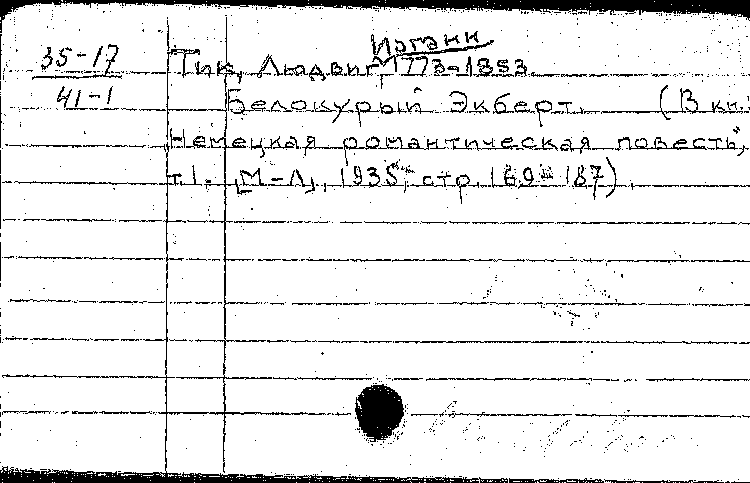 35-17
41-1
Иоганн
Тик, Людвиг, 1773-1853.
Белокурый Экберт. (В кн.:
"Немецкая романтическая повесть",
т.1. [М-Л], 1935, стр. 169-187).